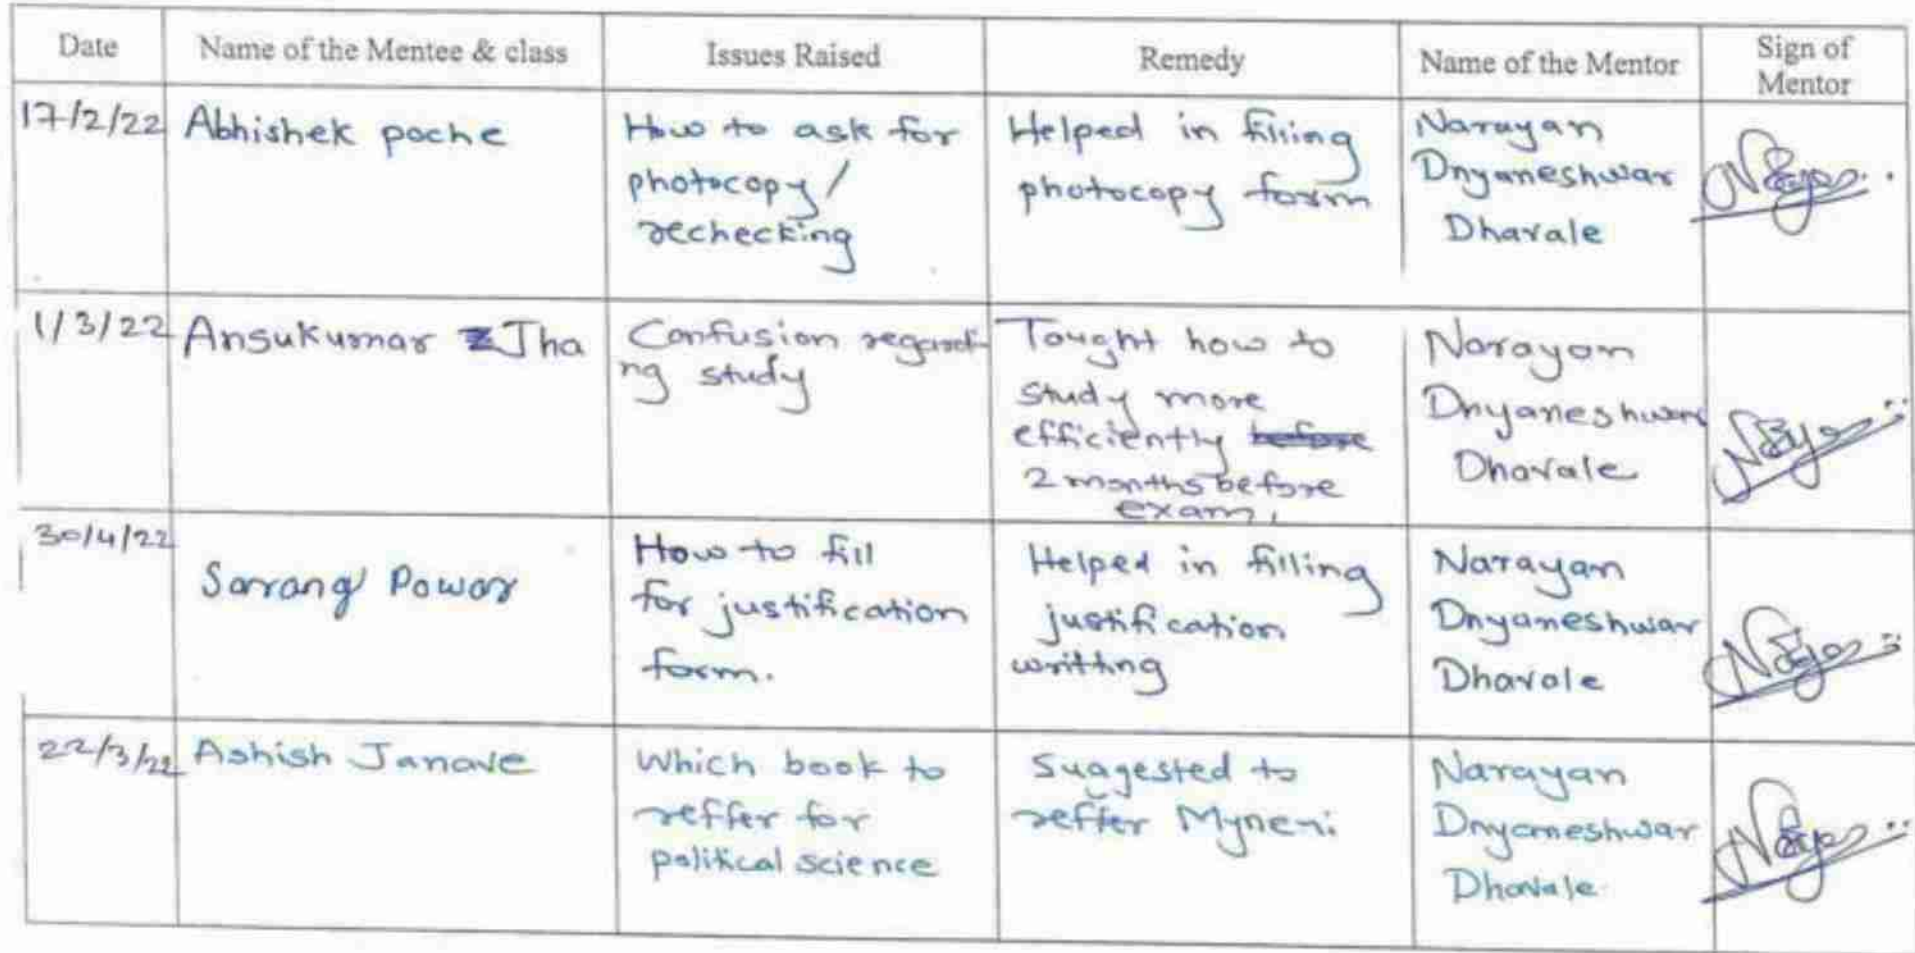 Date Name of the Mentee & class Issues Raised Remedy Name of the Mentor Sign of Mentor
17/2/22 Abhishek poche
How to ask for
photocopy/
rechecking
Helped in filling
photocopy form
Narayan
Dnyaneshwar
Dhavale
1/3/22 Ansukumar Jha
Confusion regardi
ng study
Tought how to
study more
efficiently before
2 months before
exam.
Narayan
Dnyaneshwar
Dhavale
30/4/22
Sarang Pawar
How to fill
for justification
form.
Helped in filling
justification
writting
Narayan
Dnyaneshwar
Dhavale
22/3/22 Ashish Janave
Which book to
reffer for
political science
Suggested to
reffer Myneni
Narayan
Dnyaneshwar
Dhavale